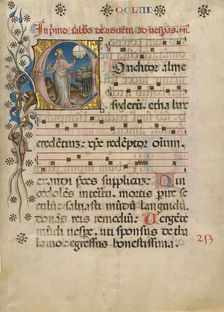 CCLIII
In primo sabbo de aduentu ad uesperas ym
Onditor alme
siderum eterna lux
credentium xpe redemptor omnium
exaudi preces supplicum Qui
condoles interitu mortis perire se
culum saluasti mundum languidum
donans reis remedium Uergente
mundi uespere uti sponsus de tha
lamo egressus honestissima
253